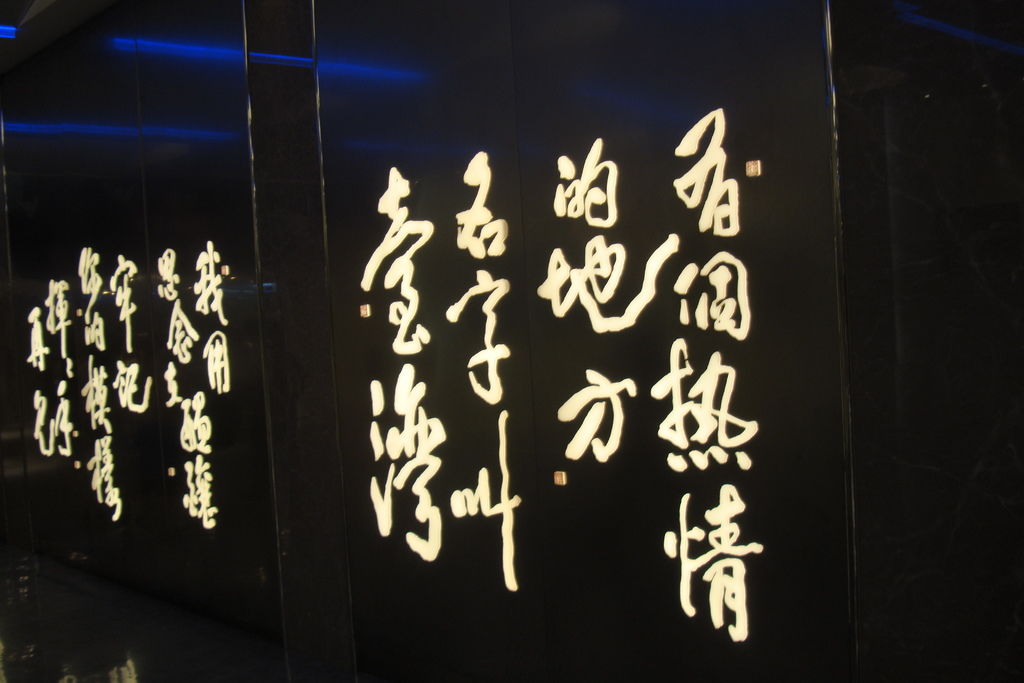 有個熱情
的地方
名字叫
臺灣
我用
思念
牢記
你的模樣
揮
再